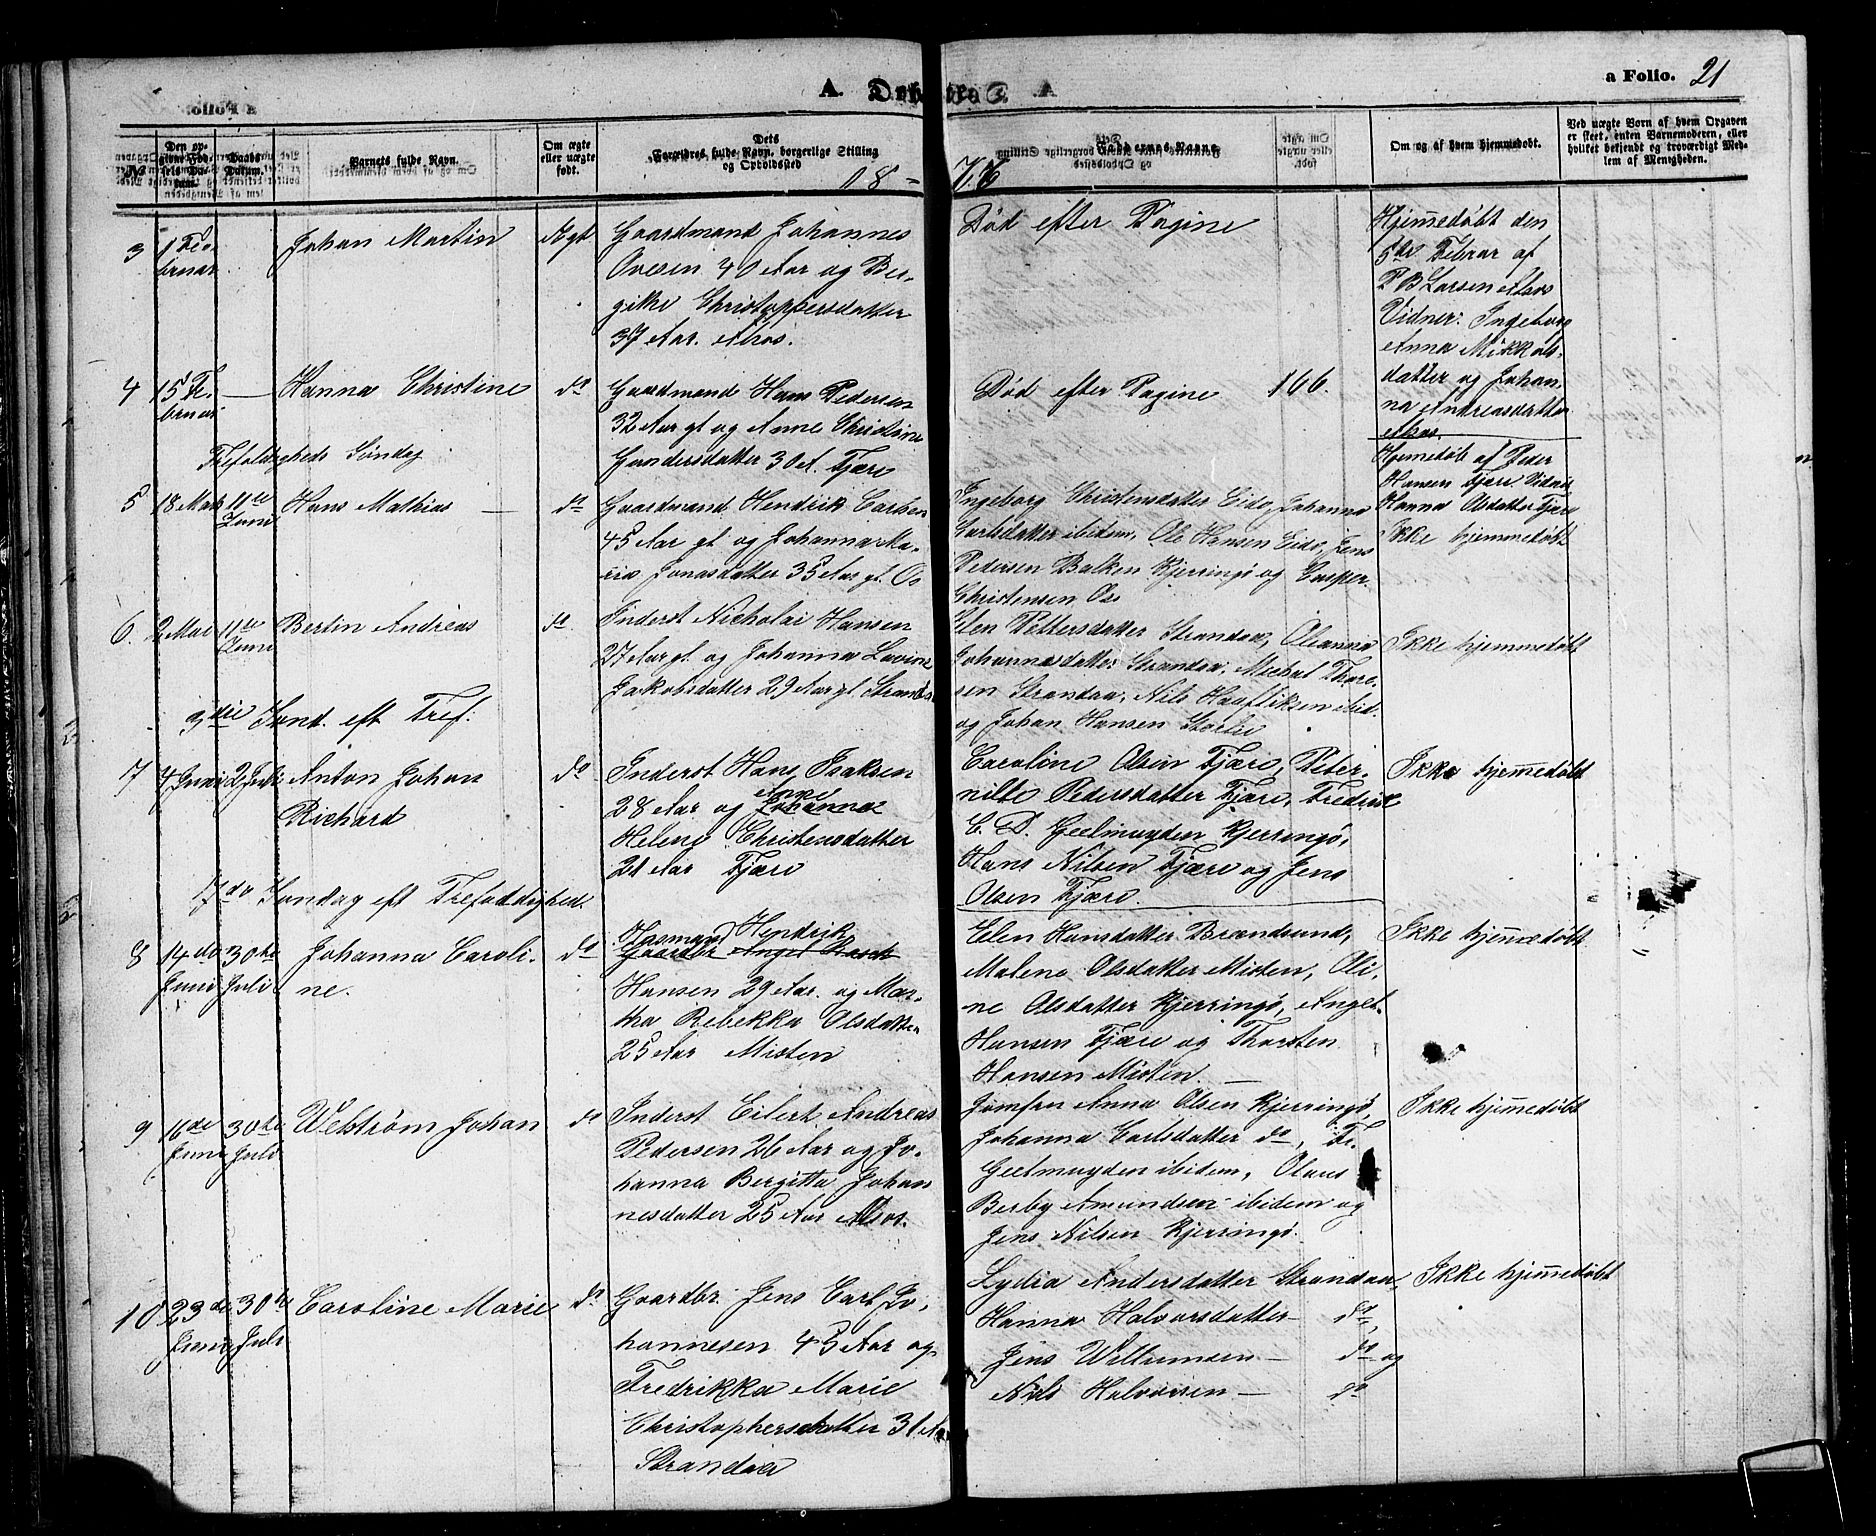 A. Døbte.
a Folio. 21
No.
Den opgivne Fødsels Datum.
Daabs Datum.
Barnets fulde Navn.
Om ægte eller uægte født.
Dets Forældres fulde Navn, borgerlige Stilling og Opholdssted
Faddernes Navne.
Om og af hvem hjemmedøbt.
Ved uægte Børn af hvem Opgaven er skeet, enten Barnemoderen, eller hvilket bekjendt og troværdigt Medlem af Menigheden.
18 = 76
3 1 Februar Johan Martin Ægt
Gaardmand Johannes
Ovesen 40 Aar og Be-
gitte Christophersdatter
37 Aar.
Død efter Pagine
Hjemmedøbt den
5te Februar af
P B Larsen
Vidner: Ingeborg
Anna Mikkels-
datter og Johan-
na Andreasdatter
4 15 Februar — Hanna Christine do
Gaardmand Hans Pedersen
32 Aar gl og Anne Christine
Gundersdatter 30 A. Fjære
Død efter Pagine 166.
Hjemmedøb af Peder
Hansen Fjære Vidne
Hanna Olsdatter Fjære
Trefoldigheds Søndag
5 18 Mai 11te Juni Hans Mathias — do
Gaardmand Hendrik Carlsen
45 Aar gl og Johanna Ma-
ria Jonasdatter 35 Aar gl. Os
Ingeborg Christensdatter Eide, Johanna
Carlsdatter ibidem, Ole Hansen Eide, Jens
Pedersen Balken Kjerringø og Casper
Christensen Os
Ikke hjemmedøbt
6. 2 Mai 11te Juni Bertin Andreas do
Inderst Nicholai Hansen
27 Aar gl. og Johanna Lovine
Jakobsdatter 29 Aar gl. Strandaa
Elen Pettersdatter Strandaa, Oleanna
Johannesdatter Strandaa, Michal Thore-
sen Strandaa, Nils ibid.
og Johan Hansen
Ikke hjemmedøbt
3die Sønd. eft Tref.
7 4 Juni 2 Juli Anton Johan
Richard do
Inderst Hans Isaksen
28 Aar og Johanna Anne
Helene Christensdatter
21 Aar Fjære
Caroline Olsen Fjære, Peter-
nille Pedersdatter Fjære, Fredrik
C. D. Geelmuyden Kjerringø,
Hans Nilsen Fjære og Jens
Olsen Fjære.
Ikke hjemmedøbt
7de Søndag eft Trefoldighed.
8 14de Juni 30te Juli Johanna Caroli-
ne. do
Husmand Hendrik
Gaardbr Angel
Hansen 29 Aar. og Mar-
tha Rebekka Olsdatter
25 Aar Misten
Elen Hansdatter Brændsund,
Malene Olsdatter Misten, Oli-
ne Olsdatter Kjerringø, Angel
Hansen Fjære og Thorsten
Hansen Misten —
Ikke hjemmedøbt
9 16de Juni 30te Juli Welstrøm Johan do
Inderst Eilert Andreas
Pedersen 26 Aar og Jo-
hanna Bergitta Johan
nesdatter 25 Aar
Jomfru Anna Olsen Kjerringø,
Johanna Carlsdatter do, Fr.
Geelmuyden ibidem, Olaus
Berby Amundsen ibidem og
Jens Nilsen Kjerringø.
Ikke hjemmedøbt
10 23de Juni 30te Juli Caroline Marie do
Gaardbr. Jens Carl Jo-
hannesen 43 Aar og
Fredrikka Marie
Christophersdatter 31 A
Strandaa
Lydia Andersdatter Strandaa,
Hanna Halvorsdatter — do,
Jens Willumsen — do og
Nils Halvorsen — do
Ikke hjemmedøbt